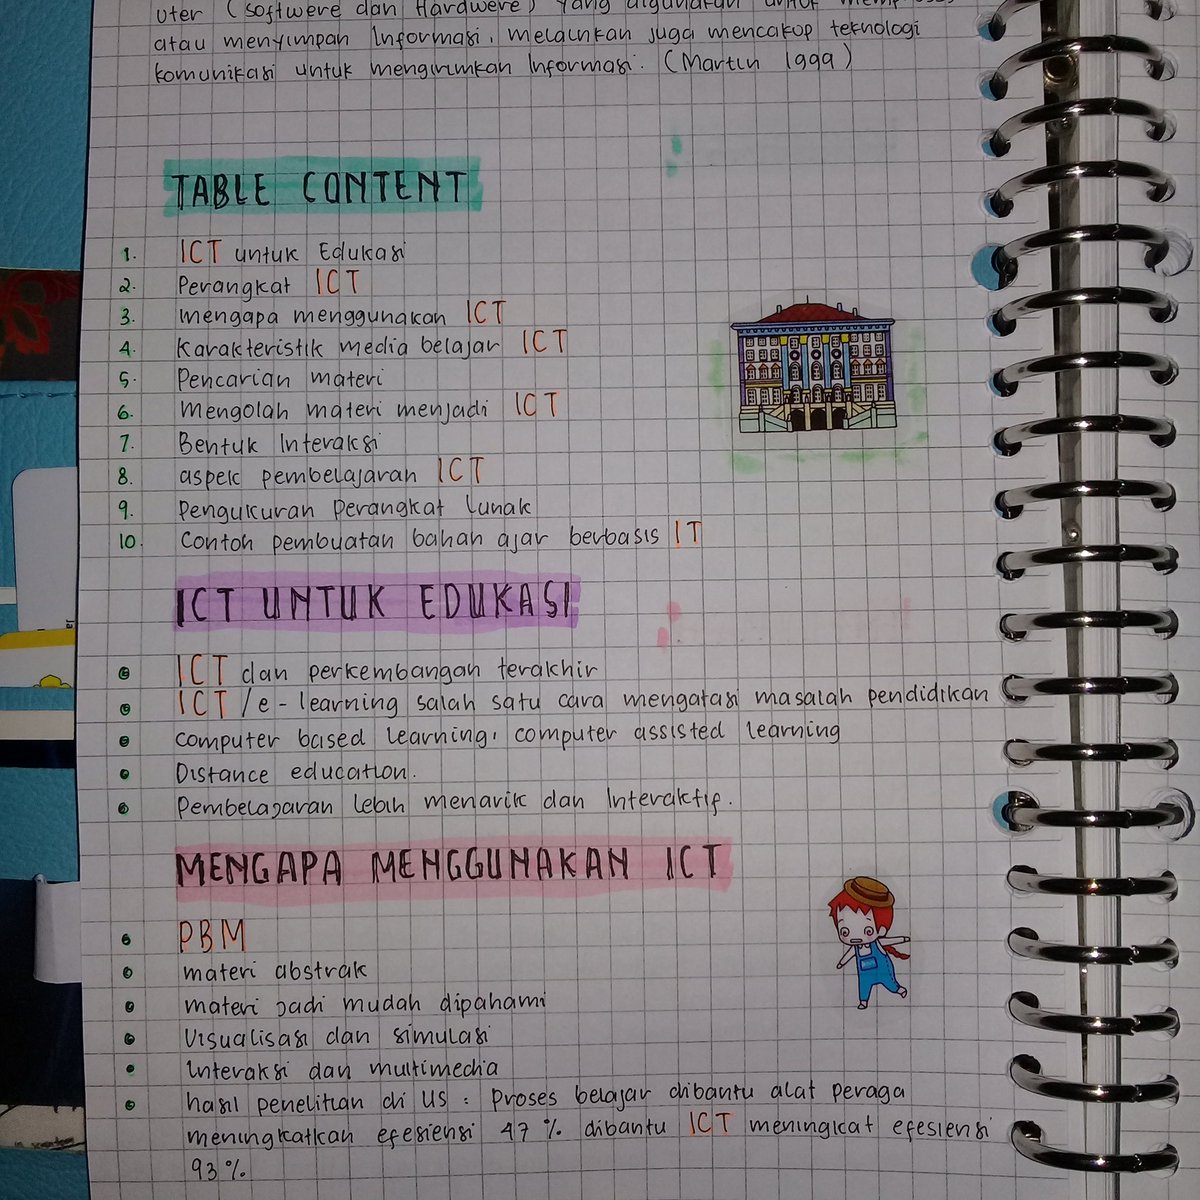 uter (Softwere dan Hardwere) yang digunakan untuk
atau menyimpan Informasi, melainkan juga mencakup teknologi
komunikasi untuk mengirimkan Informasi. (Martin 1999)
TABLE CONTENT
1. ICT untuk Edukasi
2. Perangkat ICT
3. mengapa menggunakan ICT
4. Karakteristik media belajar ICT
5. Pencarian materi
6. Mengolah materi menjadi ICT
7. Bentuk Interaksi
8. aspek pembelajaran ICT
9. Pengukuran Perangkat Lunak
10. Contoh pembuatan bahan ajar berbasis IT
ICT UNTUK EDUKASI
ICT dan perkembangan terakhir
ICT / e-learning salah satu cara mengatasi masalah pendidikan
Computer based learning, computer assisted learning
Distance education.
Pembelajaran lebih menarik dan Interaktif.
MENGAPA MENGGUNAKAN ICT
PBM
materi abstrak
materi jadi mudah dipahami
Visualisasi dan simulasi
Interaksi dan multimedia
hasil penelitian di US : Proses belajar dibantu alat peraga
meningkatkan efesiensi 47% dibantu ICT meningkat efesiensi
93%